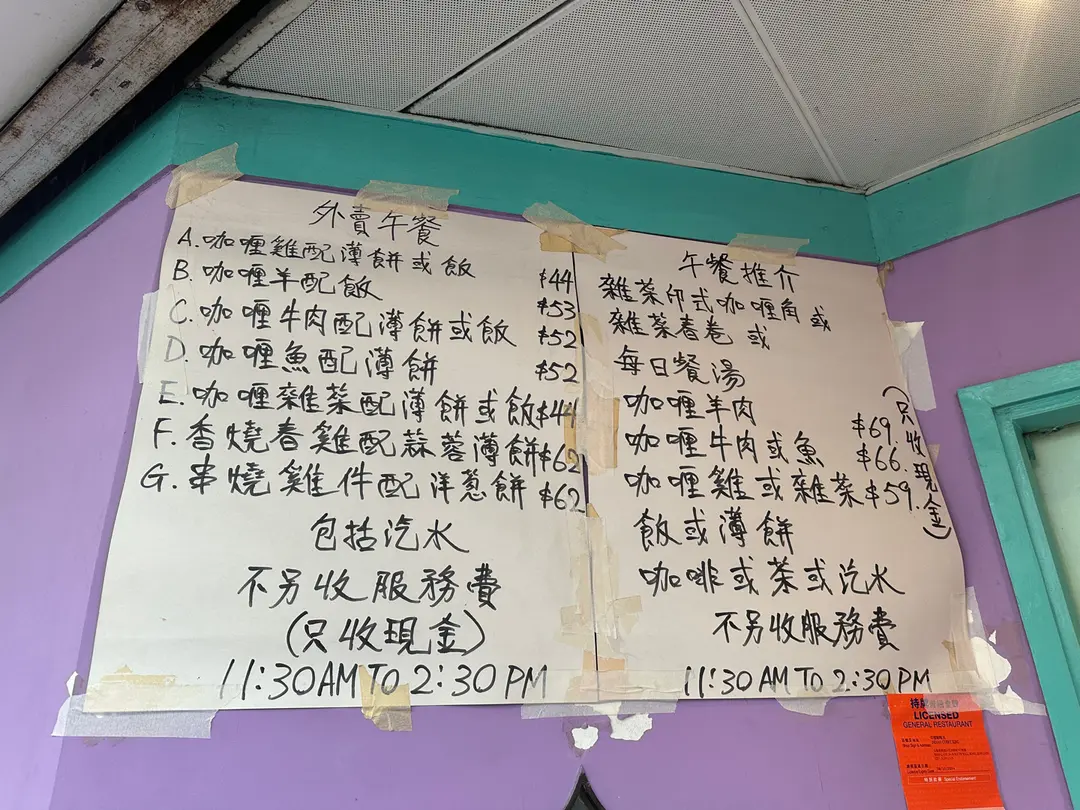 外賣午餐
A. 咖喱雞配薄餅或飯 $44
B. 咖喱羊配飯 $53
C. 咖喱牛肉配薄餅或飯 $52
D. 咖喱魚配薄餅 $52
E. 咖喱雜菜配薄餅或飯 $44
F. 香燒春雞配蒜蓉薄餅 $62
G. 串燒雞件配洋蔥餅 $62
包括汽水
不另收服務費
(只收現金)
11:30AM TO 2:30 PM
午餐推介
雜菜印式咖喱角或
雜菜春卷或
每日餐湯
咖喱羊肉 $69.
咖喱牛肉或魚 $66.
咖喱雞或雜菜 $59.
(只收現金)
飯或薄餅
咖啡或茶或汽水
不另收服務費
11:30 AM TO 2:30 PM
LICENSED
GENERAL RESTAURANT